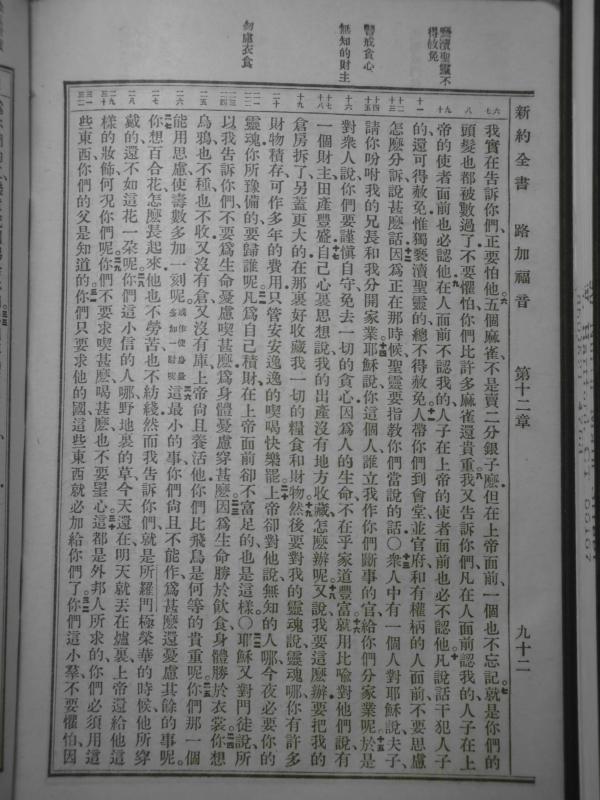 新約全書 路加福音 第十二章 九十二
褻瀆聖靈不
得赦免
警戒貪心
無知的財主
勿慮衣食
六七 我實在告訴你們正要怕他五個麻雀不是賣二分銀子麽但在上帝面前一個也不忘記就是你們的
八 頭髮也都被數過了不要懼怕你們比許多麻雀還貴重我又告訴你們凡在人面前認我的人子在上
九十 帝的使者面前也必認他在人面前不認我的人子在上帝的使者面前也必不認他凡說話干犯人子
十一 的還可得赦免惟獨褻瀆聖靈的總不得赦免人帶你們到會堂並官府和有權柄的人面前不要思慮
十二十三 怎麽分訴說甚麽話因爲正在那時候聖靈要指教你們當說的話○衆人中有一個人對耶穌說夫子
十四十五 請你吩咐我的兄長和我分開家業耶穌說你這個人誰立我作你們斷事的官給你們分家業呢於是
十六 對衆人說你們要謹愼自守免去一切的貪心因爲人的生命不在乎家道豐富就用比喻對他們說有
十七十八 一個財主田產豐盛自己心裏思想說我的出產沒有地方收藏怎麽辦呢又說我要這麽辦要把我的
十九 倉房拆了另蓋更大的在那裏好收藏我一切的糧食和財物然後要對我的靈魂說靈魂哪你有許多
二十 財物積存可作多年的費用只管安安逸逸的喫喝快樂罷上帝卻對他說無知的人哪今夜必要你的
二一二二 靈魂你所豫備的要歸誰呢凡爲自己積財在上帝面前卻不富足的也是這樣○耶穌又對門徒說所
二三二四 以我告訴你們不要爲生命憂慮喫甚麽爲身體憂慮穿甚麽因爲生命勝於飲食身體勝於衣裳你想
二五 烏鴉也不種也不收又沒有倉又沒有庫上帝尚且養活他你們比飛鳥是何等的貴重呢你們那一個
二六 能用思慮使壽數多加一刻呢或作使身量多加一肘呢這最小的事你們尚且不能作爲甚麽還憂慮其餘的事呢
二七 你想百合花怎麽長起來他也不勞苦也不紡綫然而我告訴你們就是所羅門極榮華的時候他所穿
二八 戴的還不如這花一朶呢你們這小信的人哪野地裏的草今天還在明天就丟在爐裏上帝還給他這
二九三十 樣的妝飾何況你們呢你們不要求喫甚麽喝甚麽也不要罣心這都是外邦人所求的你們必須用這
三一三二 些東西你們的父是知道的你們只要求他的國這些東西就必加給你們了你們這小羣不要懼怕因